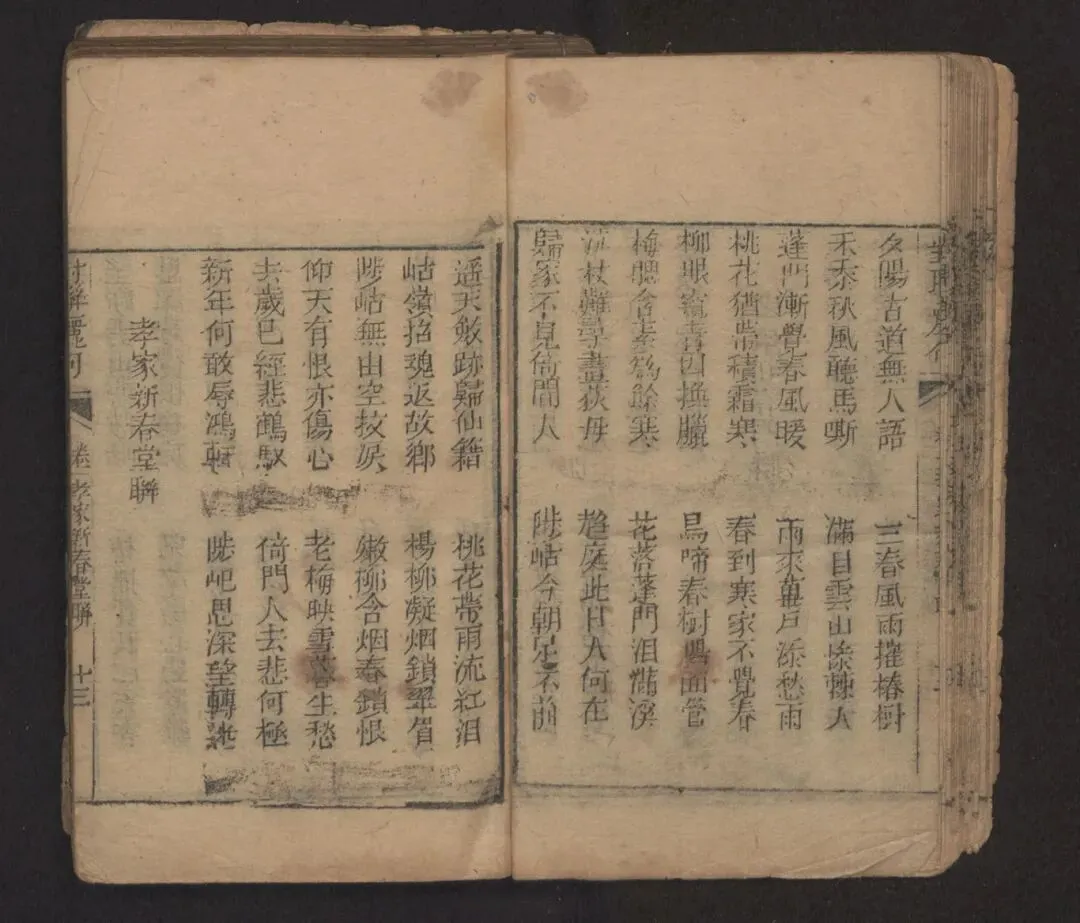 夕陽古道無人語 三春風雨摧椿樹
禾黍秋風聽馬嘶 滿目雲山慘棘人
蓬門漸覺春風暖 雨來蓽戶添愁雨
桃花猶帶積霜寒 春到寒家不覺春
柳眼窺春因換臘 鳥啼春樹興面管
梅腮含素為餘寒 花落蓬門泪滿溪
泣杖難尋畫荻母 趋庭此日人何在
歸家不見倚閭人 陟岵今朝足不前
遥天斂跡歸仙籍 桃花帶雨流紅泪
岵嶺招魂返故鄉 楊柳凝烟鎖翠眉
陟岵無由空抆淚 嫩柳含烟春鎖恨
仰天有恨亦傷心 老梅映雪暮生愁
去歲已經悲鶴馭 倚門人去悲何極
新年何敢辱鴻軒 陟屺思深望轉
孝家新春堂聯
卷 孝家新春堂聯 十三